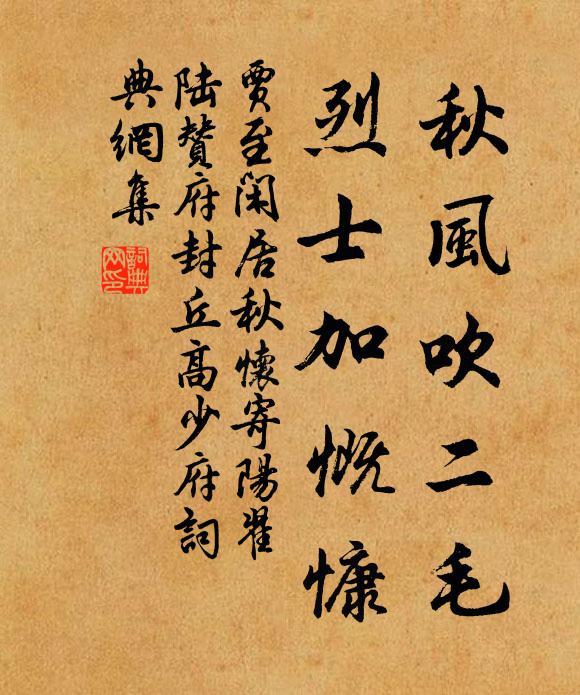 秋風吹二毛
烈士加慨慷
賈至閑居秋懷寄陽翟
陸贊府封丘高少府詞
典網集
詞典網印